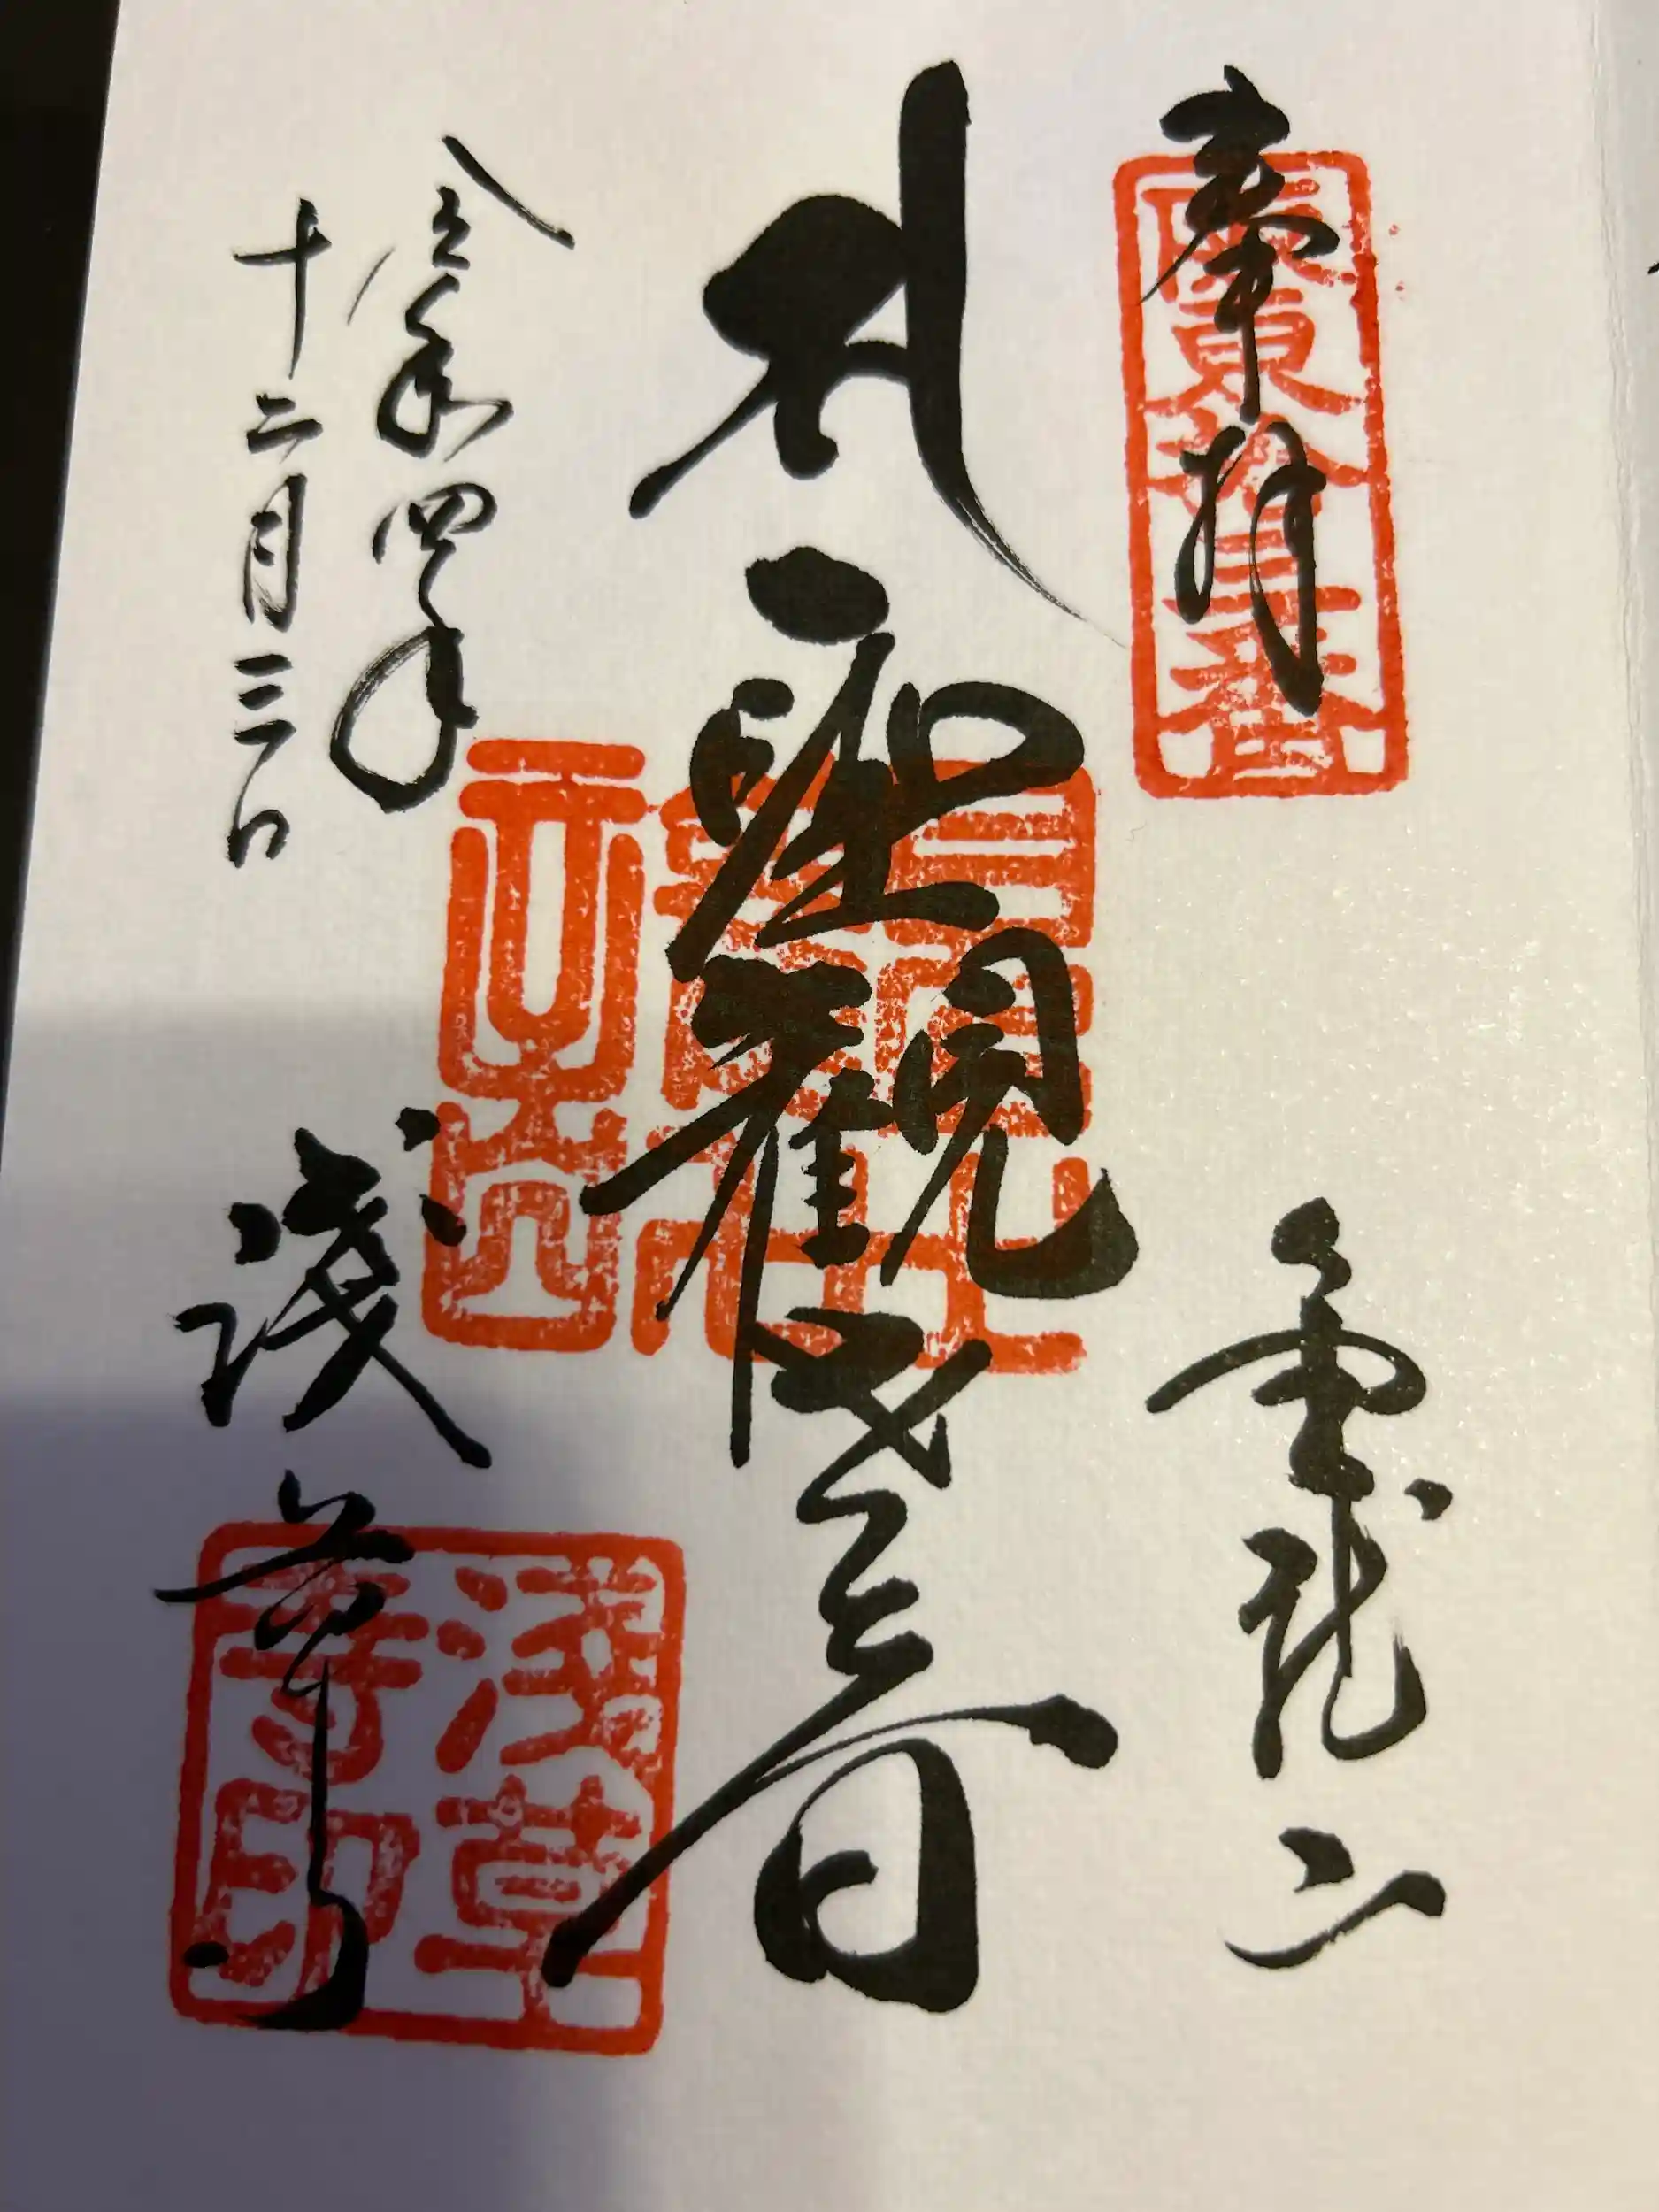 奉拝
坂東拾三番
金龍山
聖観世音
令和四年
十二月三日
淺草寺
浅草
寺印